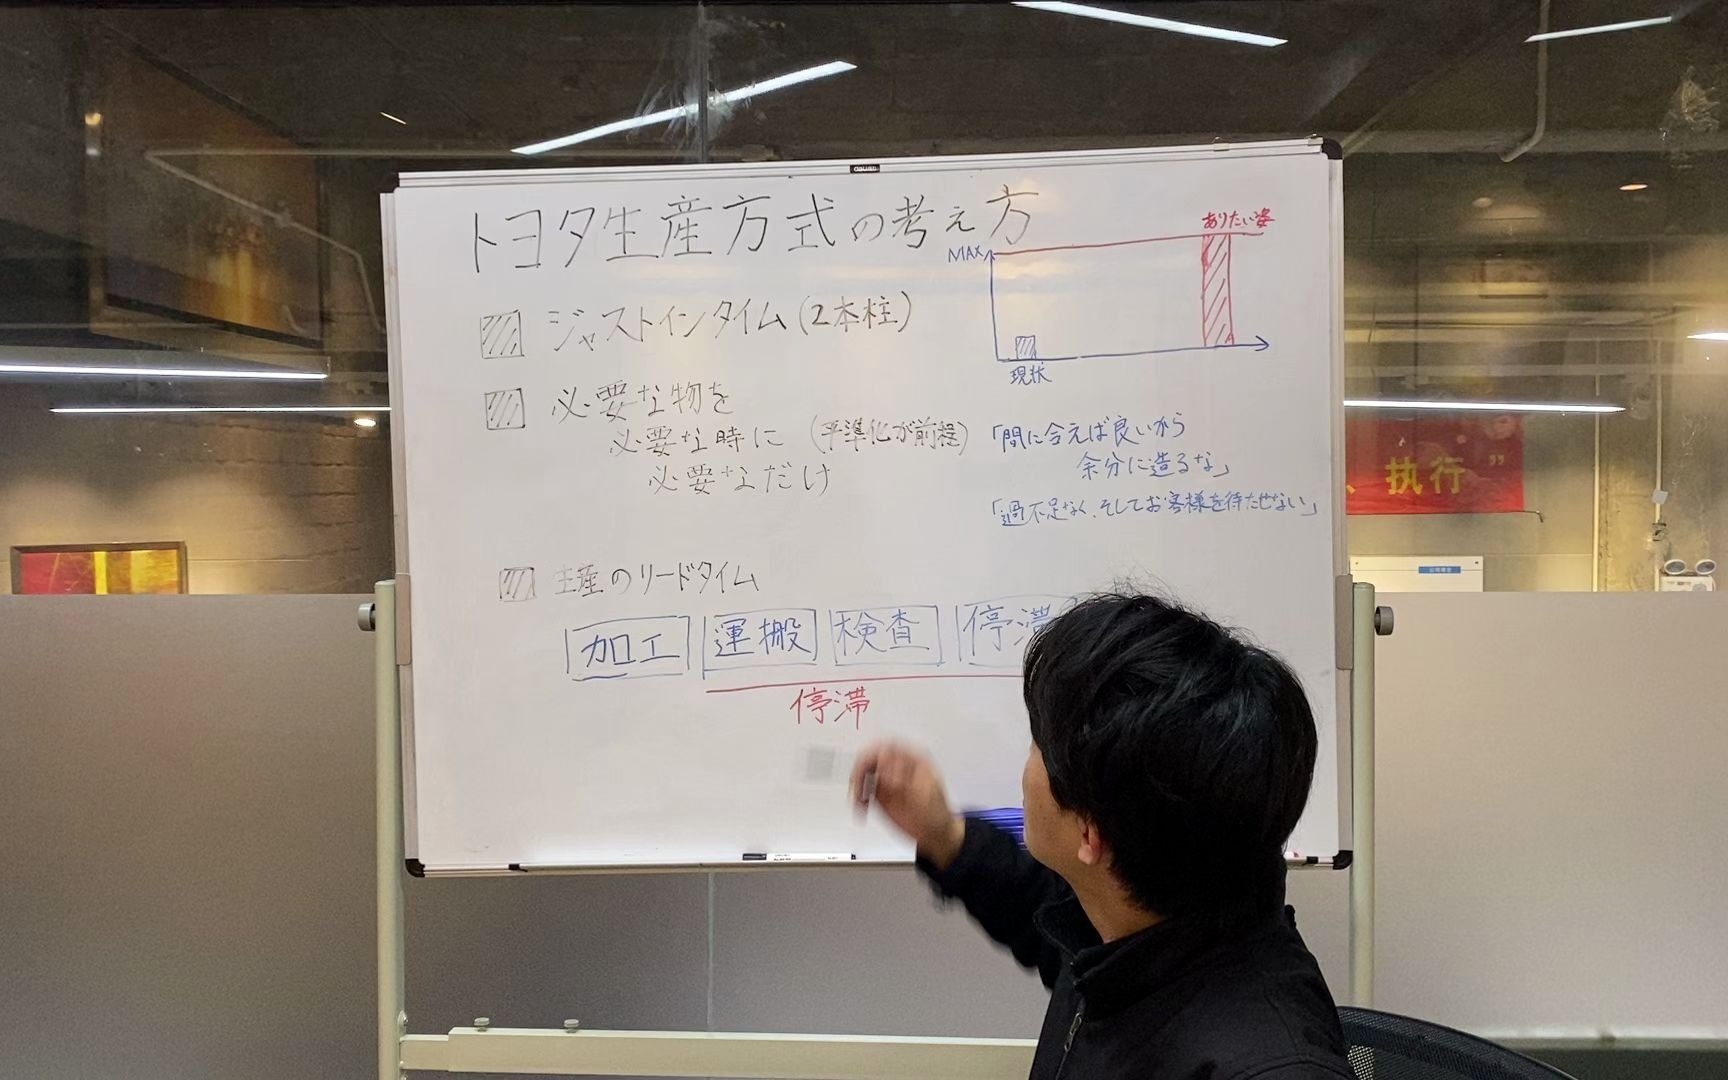 トヨタ生産方式の考え方
ジャストインタイム(2本柱)
必要な物を
必要な時に (平準化が前程)
必要なだけ
MAX
ありたい姿
現状
「間に合えば良いから
余分に造るな」
「過不足なく、そしてお客様を待たせない」
生産のリードタイム
加工 運搬 検査 停滞
停滞
、执行”